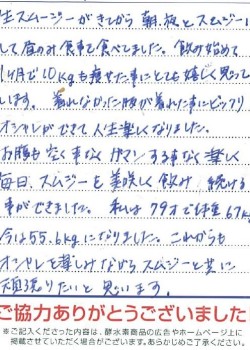 生スムージーがきてから朝、夜とスムージ
して昼のみ食事を食べました。飲み始めて
1ヶ月で10kgも痩せた事にとても嬉しく思って
います。着れなかった服が着れた事にビックリ
オシャレができて人生楽しくなりました。
お腹も空く事なくガマンする事なく楽しく
毎日、スムジーを美味しく飲み 続ける
事ができました。私は79才で体重67kg
今は55.6kgになりました。これからも
オシャレを楽しみながらスムジーと共に
頑張りたいと思います。
ご協力ありがとうございました!
※ご記入くださった内容は、酵水素商品の広告やホームページ上に
掲載させていただく場合がございます。あらかじめご了承ください。